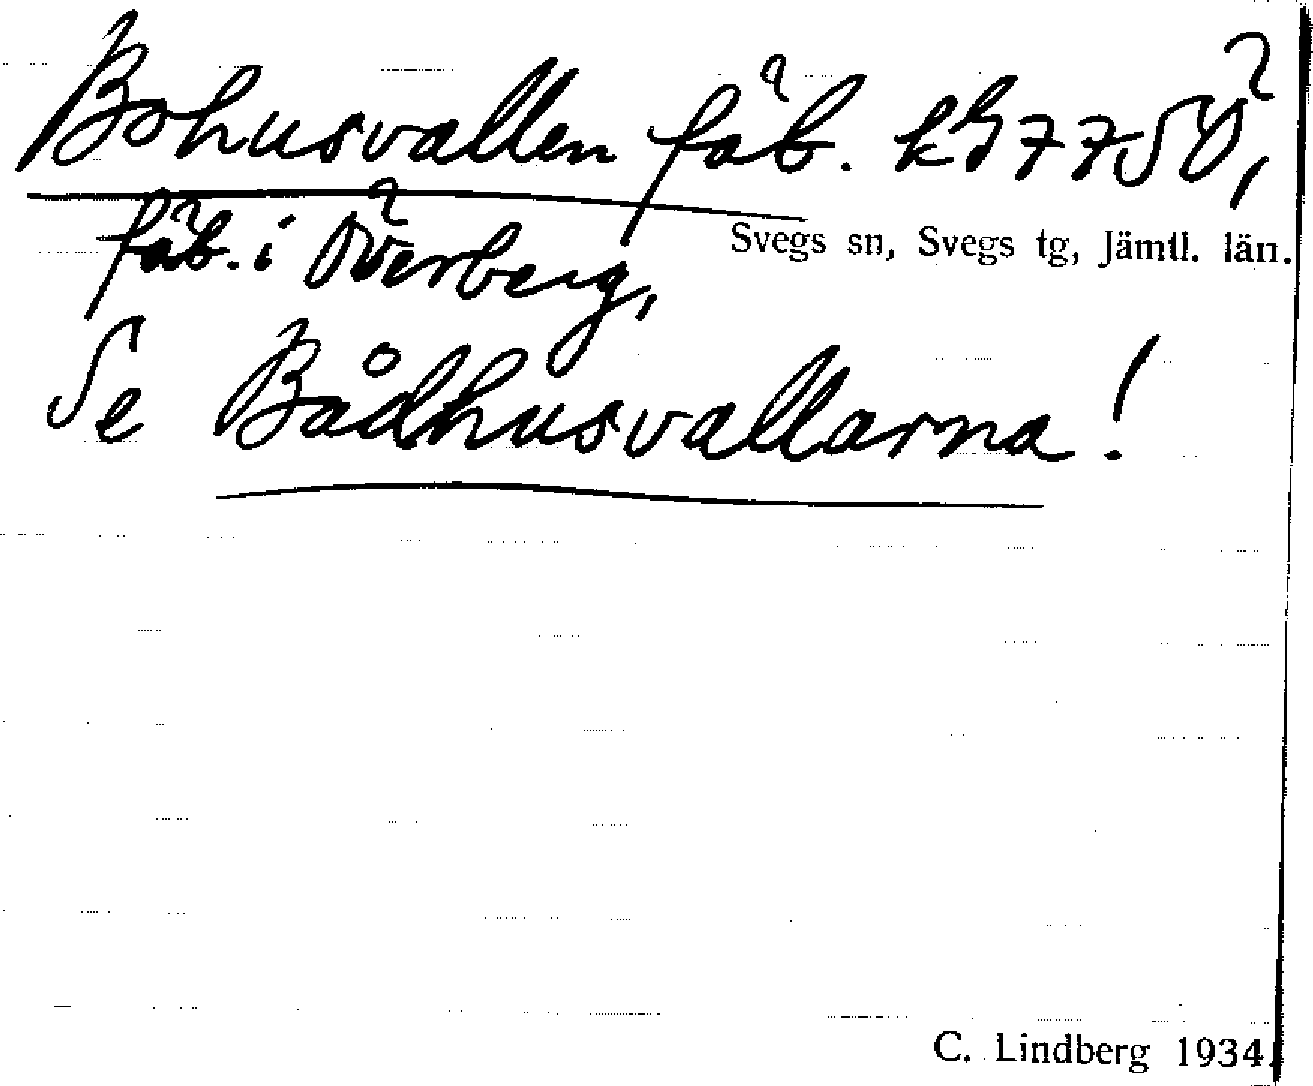 Bohusvallen fäb. kg 77 SÖ,
Svegs sn, Svegs tg, Jämtl. län.
fäb. i Överberg,
Se Bådhusvallarna!
C. Lindberg 1934.